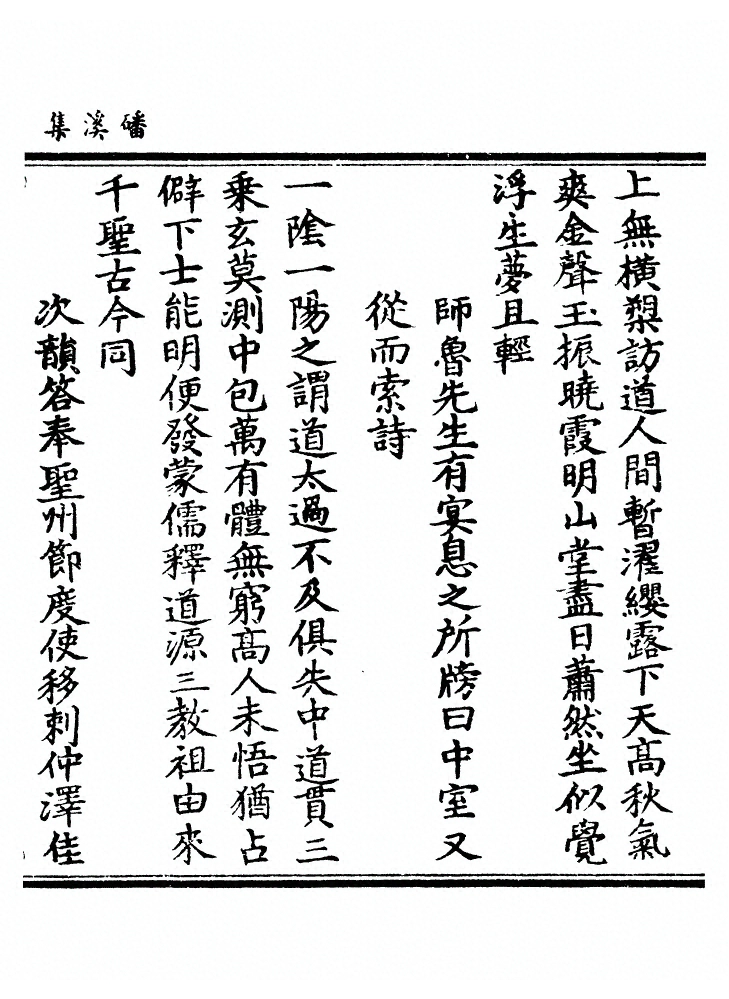 磻溪集
上無橫槊訪道人間暫濯纓露下天高秋氣
爽金聲玉振曉霞明山堂盡日蕭然坐似覺
浮生夢且輕
師魯先生有宴息之所牓曰中室又
從而索詩
一陰一陽之謂道太過不及俱失中道貫三
乘玄莫測中包萬有體無窮高人未悟猶占
僻下士能明便發蒙儒釋道源三教祖由來
千聖古今同
次韻答奉聖州節度使移剌仲澤佳